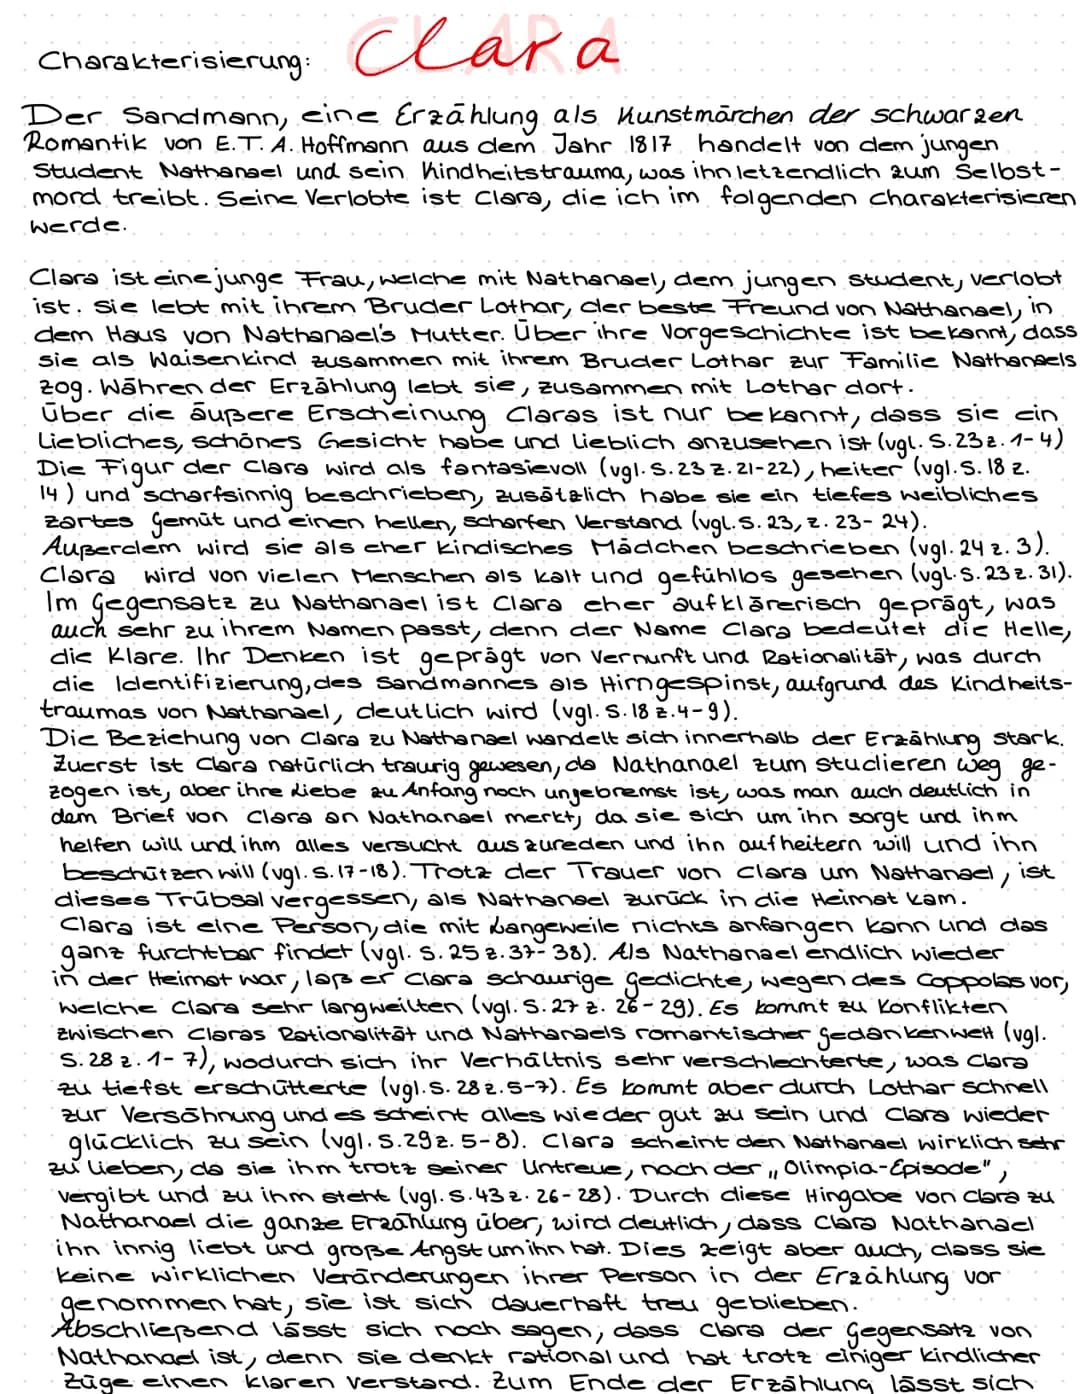 Charakterisierung: Clara
Der Sandmann, eine Erzählung als Kunstmärchen der schwarzen
Romantik von E.T.A. Hoffmann aus dem Jahr 1817 handelt von dem jungen
Student Nathanael und sein Kindheitstrauma, was ihn letzendlich zum Selbst-
mord treibt. Seine Verlobte ist Clara, die ich im folgenden Charakterisieren
werde.
Clara ist eine junge Frau, welche mit Nathanael, dem jungen Student, verlobt
ist. Sie lebt mit ihrem Bruder Lothar, der beste Freund von Nathanael, in
dem Haus von Nathanael's Mutter. Über ihre Vorgeschichte ist bekannt, dass
sie als Waisenkind zusammen mit ihrem Bruder Lothar zur Familie Nathanaels
zog. Währen der Erzählung lebt sie, zusammen mit Lothar dort.
Über die äußere Erscheinung Claras ist nur bekannt, dass sie ein
Liebliches, schönes Gesicht habe und lieblich anzusehen ist (vgl. S.23 z. 1-4)
Die Figur der Clara wird als fantasievoll (vgl. S. 23 z. 21-22), heiter (vgl. S. 18 z.
14) und scharfsinnig beschrieben, zusätzlich habe sie ein tiefes weibliches
zartes Gemüt und einen hellen, scharfen Verstand (vgl. S. 23, z. 23-24).
Außerdem wird sie als eher kindisches Mädchen beschrieben (vgl. 24 z. 3).
Clara wird von vielen Menschen als kalt und gefühllos gesehen (vgl. S. 23 z. 31).
Im Gegensatz zu Nathanael ist Clara eher aufklärerisch geprägt, was
auch sehr zu ihrem Namen passt, denn der Name Clara bedeutet die Helle,
die Klare. Ihr Denken ist geprägt von Vernunft und Rationalität, was durch
die Identifizierung, des Sandmannes als Hirngespinst, aufgrund des Kindheits-
traumas von Nathanael, deutlich wird (vgl. S. 18 z. 4-9).
Die Beziehung von Clara zu Nathanael wandelt sich innerhalb der Erzählung stark.
Zuerst ist Clara natürlich traurig gewesen, da Nathanael zum studieren weg ge-
zogen ist, aber ihre Liebe zu Anfang noch ungebremst ist, was man auch deutlich in
dem Brief von Clara an Nathanael merkt, da sie sich um ihn sorgt und ihm
helfen will und ihm alles versucht auszureden und ihn aufheitern will und ihn
beschützen will (vgl. S. 17-18). Trotz der Trauer von Clara um Nathanael, ist
dieses Trübsal vergessen, als Nathanael zurück in die Heimat kam.
Clara ist eine Person, die mit Langeweile nichts anfangen kann und das
ganz furchtbar findet (vgl. S. 25 z. 37-38). Als Nathanael endlich wieder
in der Heimat war, laß er Clara schaurige Gedichte, wegen des Coppolas vor,
welche Clara sehr langweilten (vgl. S. 27 z. 26-29). Es kommt zu Konflikten
zwischen Claras Rationalität und Nathanaels romantischer Gedankenwelt (vgl.
S. 28 z. 1-7), wodurch sich ihr Verhältnis sehr verschlechterte, was Clara
zu tiefst erschütterte (vgl. S. 28 z. 5-7). Es kommt aber durch Lothar schnell
zur Versöhnung und es scheint alles wieder gut zu sein und Clara wieder
glücklich zu sein (vgl. S. 29 z. 5-8). Clara scheint den Nathanael wirklich sehr
zu lieben, da sie ihm trotz seiner Untreue, nach der „Olimpia-Episode",
vergibt und zu ihm steht (vgl. S. 43 z. 26-28). Durch diese Hingabe von Clara zu
Nathanael die ganze Erzählung über, wird deutlich, dass Clara Nathanael
ihn innig liebt und große Angst um ihn hat. Dies zeigt aber auch, dass sie
keine wirklichen Veränderungen ihrer Person in der Erzählung vor
genommen hat, sie ist sich dauerhaft treu geblieben.
Abschließend lässt sich noch sagen, dass Clara der Gegensatz von
Nathanael ist, denn sie denkt rational und hat trotz einiger kindlicher
Züge einen klaren Verstand. Zum Ende der Erzählung lässt sich